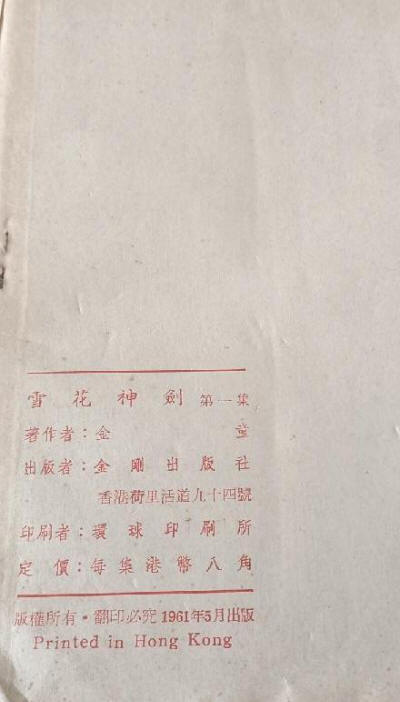 雪花神劍 第一集
著作者：金童
出版者：金剛出版社
香港荷里活道九十四號
印刷者：環球印刷所
定價：每集港幣八角
版權所有・翻印必究 1961年5月出版
Printed in Hong Kong